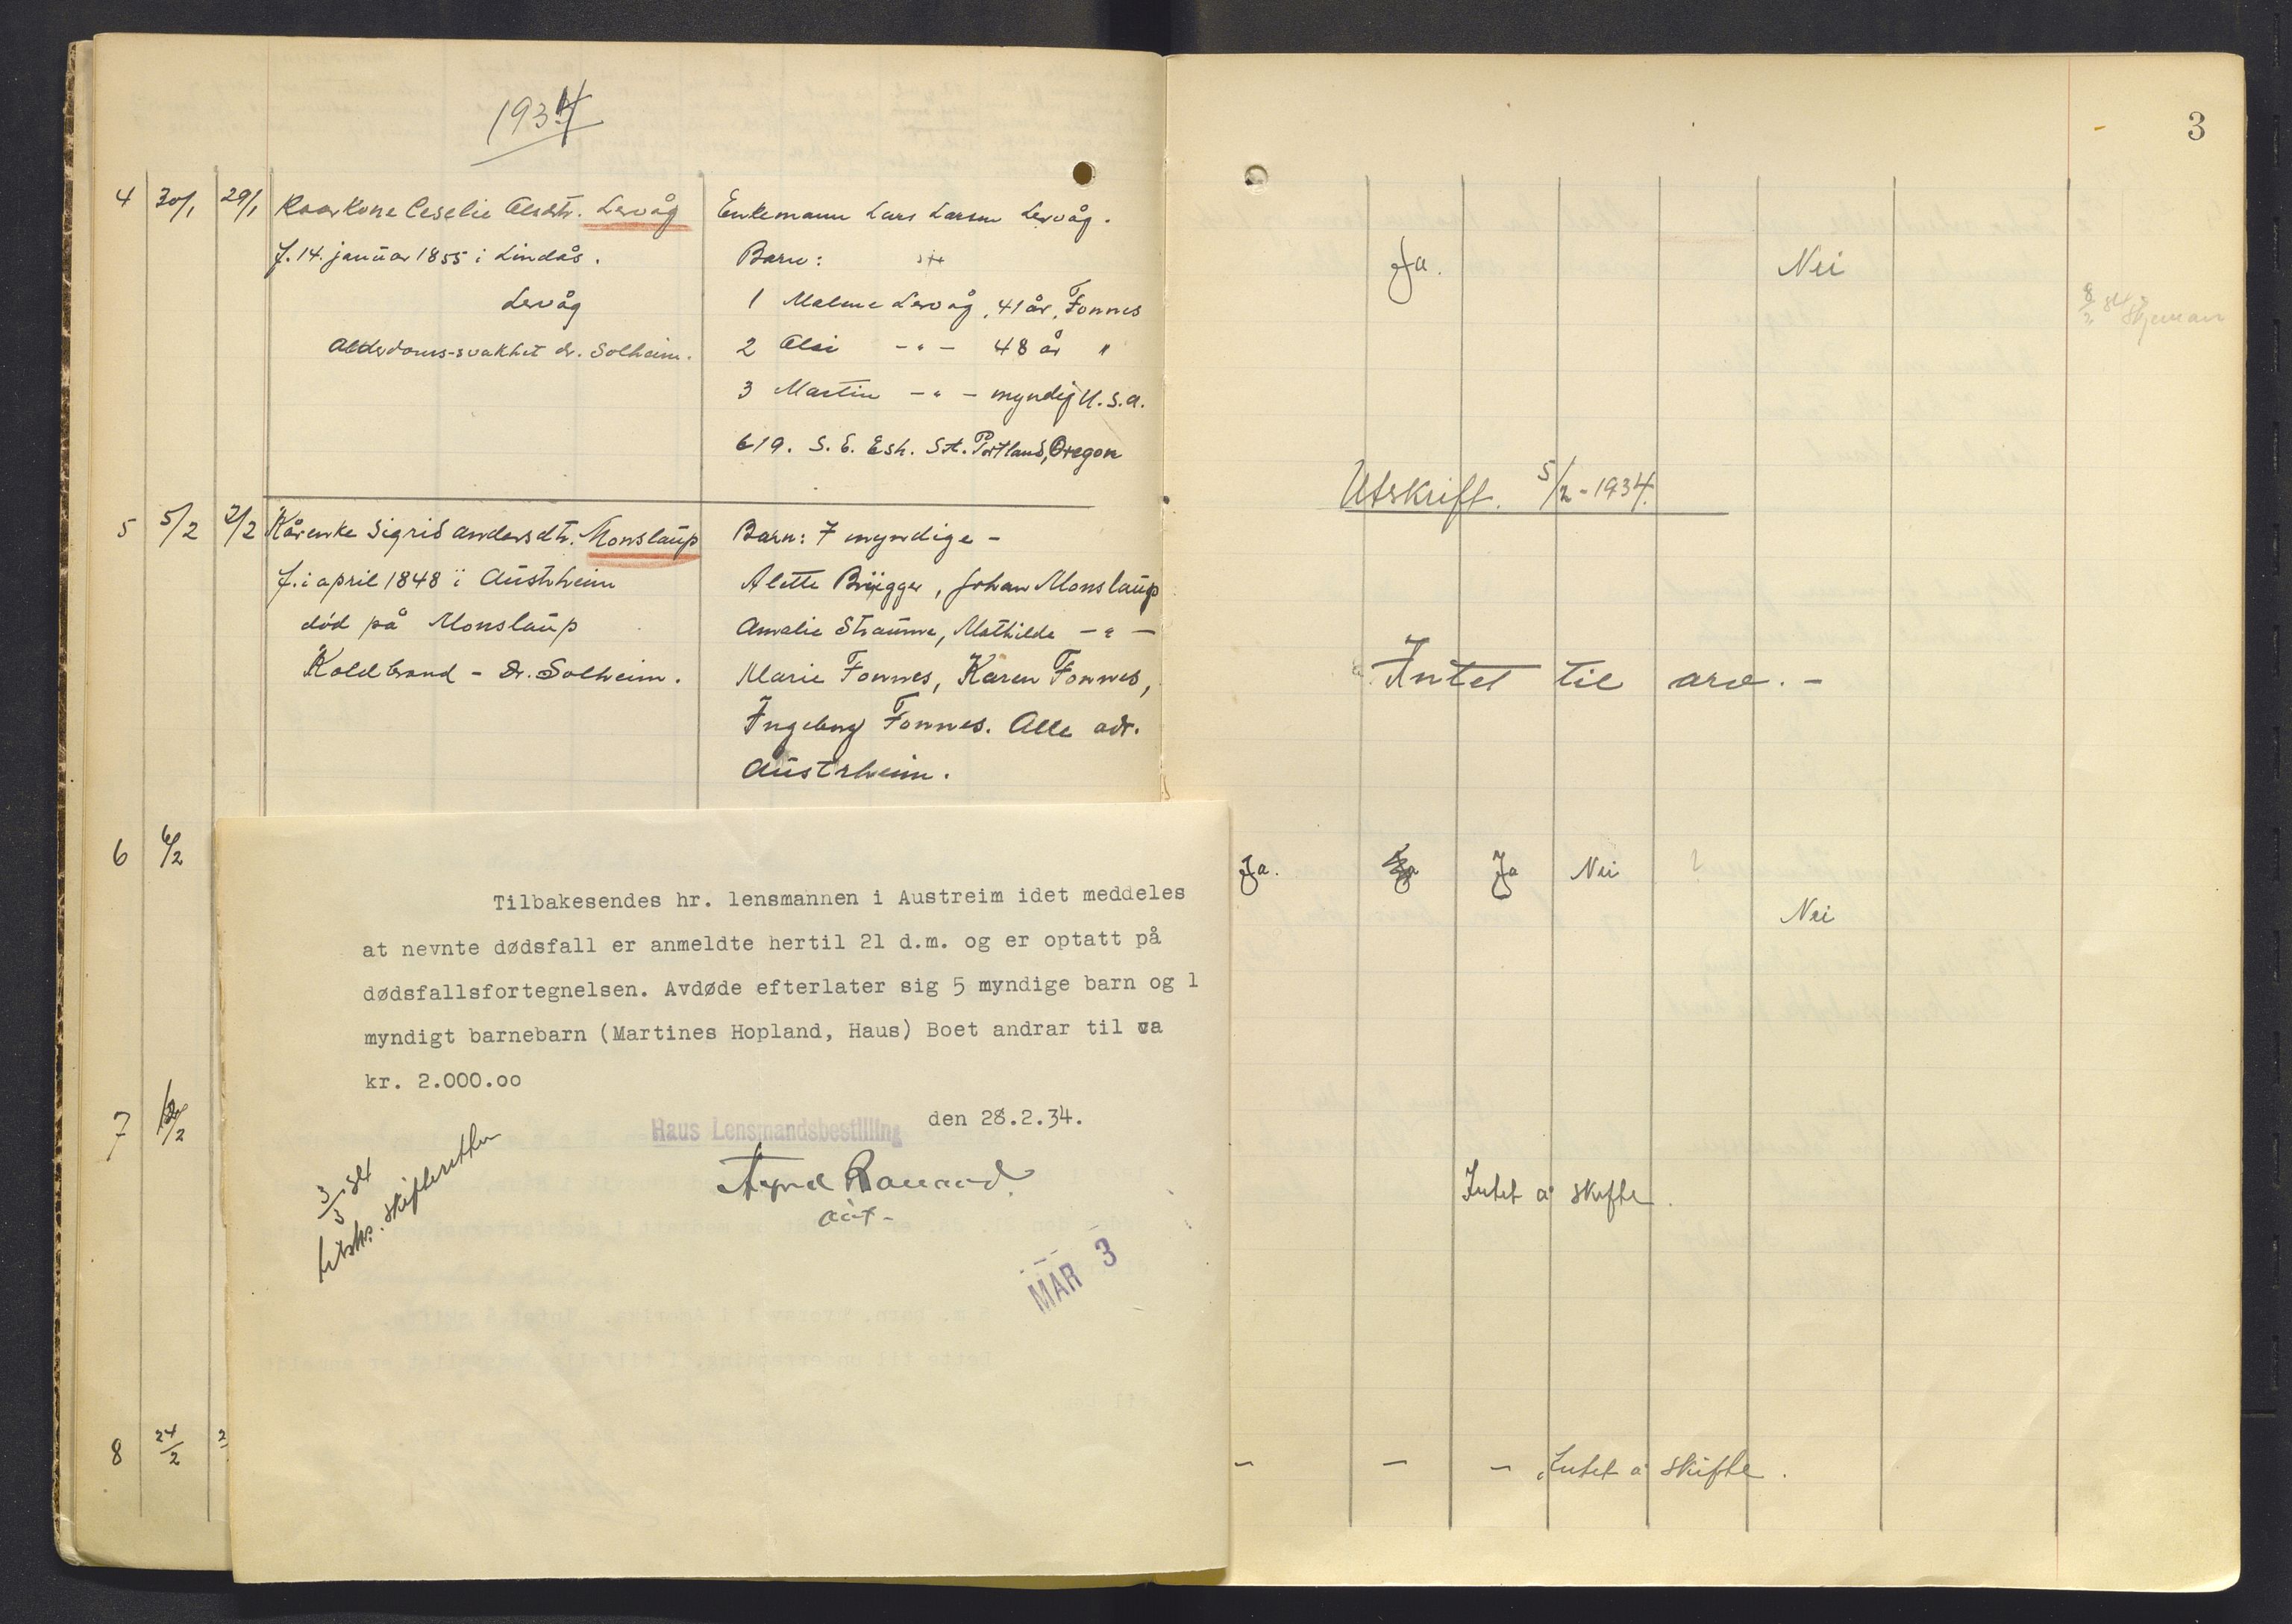 1934
3
4 30/1 29/1 Kaarkone Ceselie Olsdtr. Lervåg
f. 14. januar 1855 i Lindås.
Lervåg
Alderdoms-svakhet dr. Solheim.
Enkemann Lars Larsen Lervåg.
Barn:
1 Malene Lervåg, 41 år, Fonnes
2 Olai -"- 48 år "
3 Martin -"- myndig U.S.A.
619. S. E. Esh. St. Portland, Oregon
Ja. Nei
Utskrift. 5/2-1934.
5 5/2 2/2 Kårenke Sigrid Andersdtr. Monslaup
f. i april 1848 i Austrheim
død på Monslaup
Koldbrand - Dr. Solheim.
Barn: 7 myndige -
Alette Brügger, Johan Monslaup
Amalie Straume, Mathilde -"-
Marie Fonnes, Karen Fonnes,
Ingeborg Fonnes. Alle adr.
Austrheim.
Intet til arv. -
6 6/2
Ja. Ja Nei ?
Nei
7
Intet å skifte.
8 24/2 2
- - - Intet å skifte.
Tilbakesendes hr. lensmannen i Austreim idet meddeles
at nevnte dødsfall er anmeldte hertil 21 d.m. og er optatt på
dødsfallsfortegnelsen. Avdøde efterlater sig 5 myndige barn og 1
myndigt barnebarn (Martines Hopland, Haus) Boet andrar til ca
kr. 2.000.oo
Haus Lensmandsbestilling den 28.2.34.
3/3 34
utskr. skifteretten
MAR 3